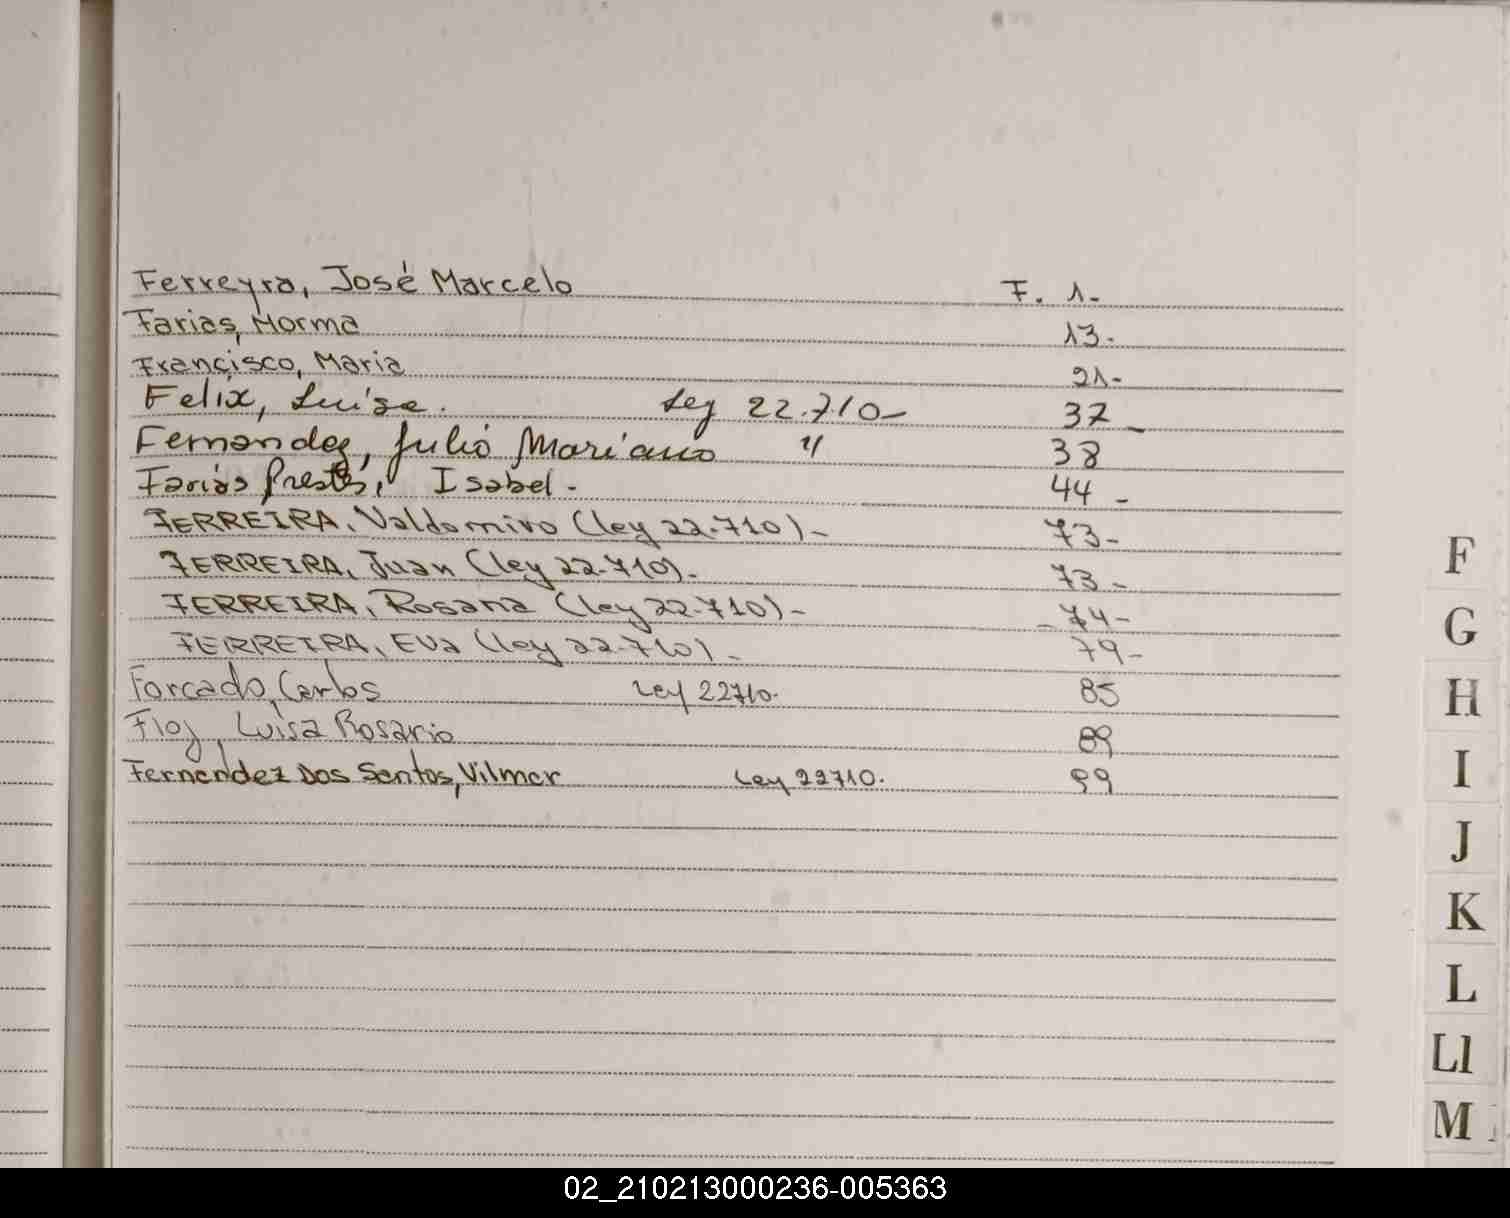 Ferreyra, José Marcelo F. 1-
Farias, Norma 13-
Francisco, Maria 21-
Felix, Luisa. Ley 22.710- 37-
Fernandez, Julio Mariano " 38
Farias Prestes, Isabel- 44-
FERREIRA, Valdomiro (ley 22.710)- 73-
FERREIRA, Juan (ley 22.710)- 73-
FERREIRA, Rosana (ley 22.710)- -74-
FERREIRA, Eva (ley 22.710)- 79-
Forcado, Carlos Ley 22710- 85
Luisa Rosario 89
Fernandez Dos Santos, Vilmar Ley 22710. 99
F
G
H
I
J
K
L
Ll
M
02_210213000236-005363